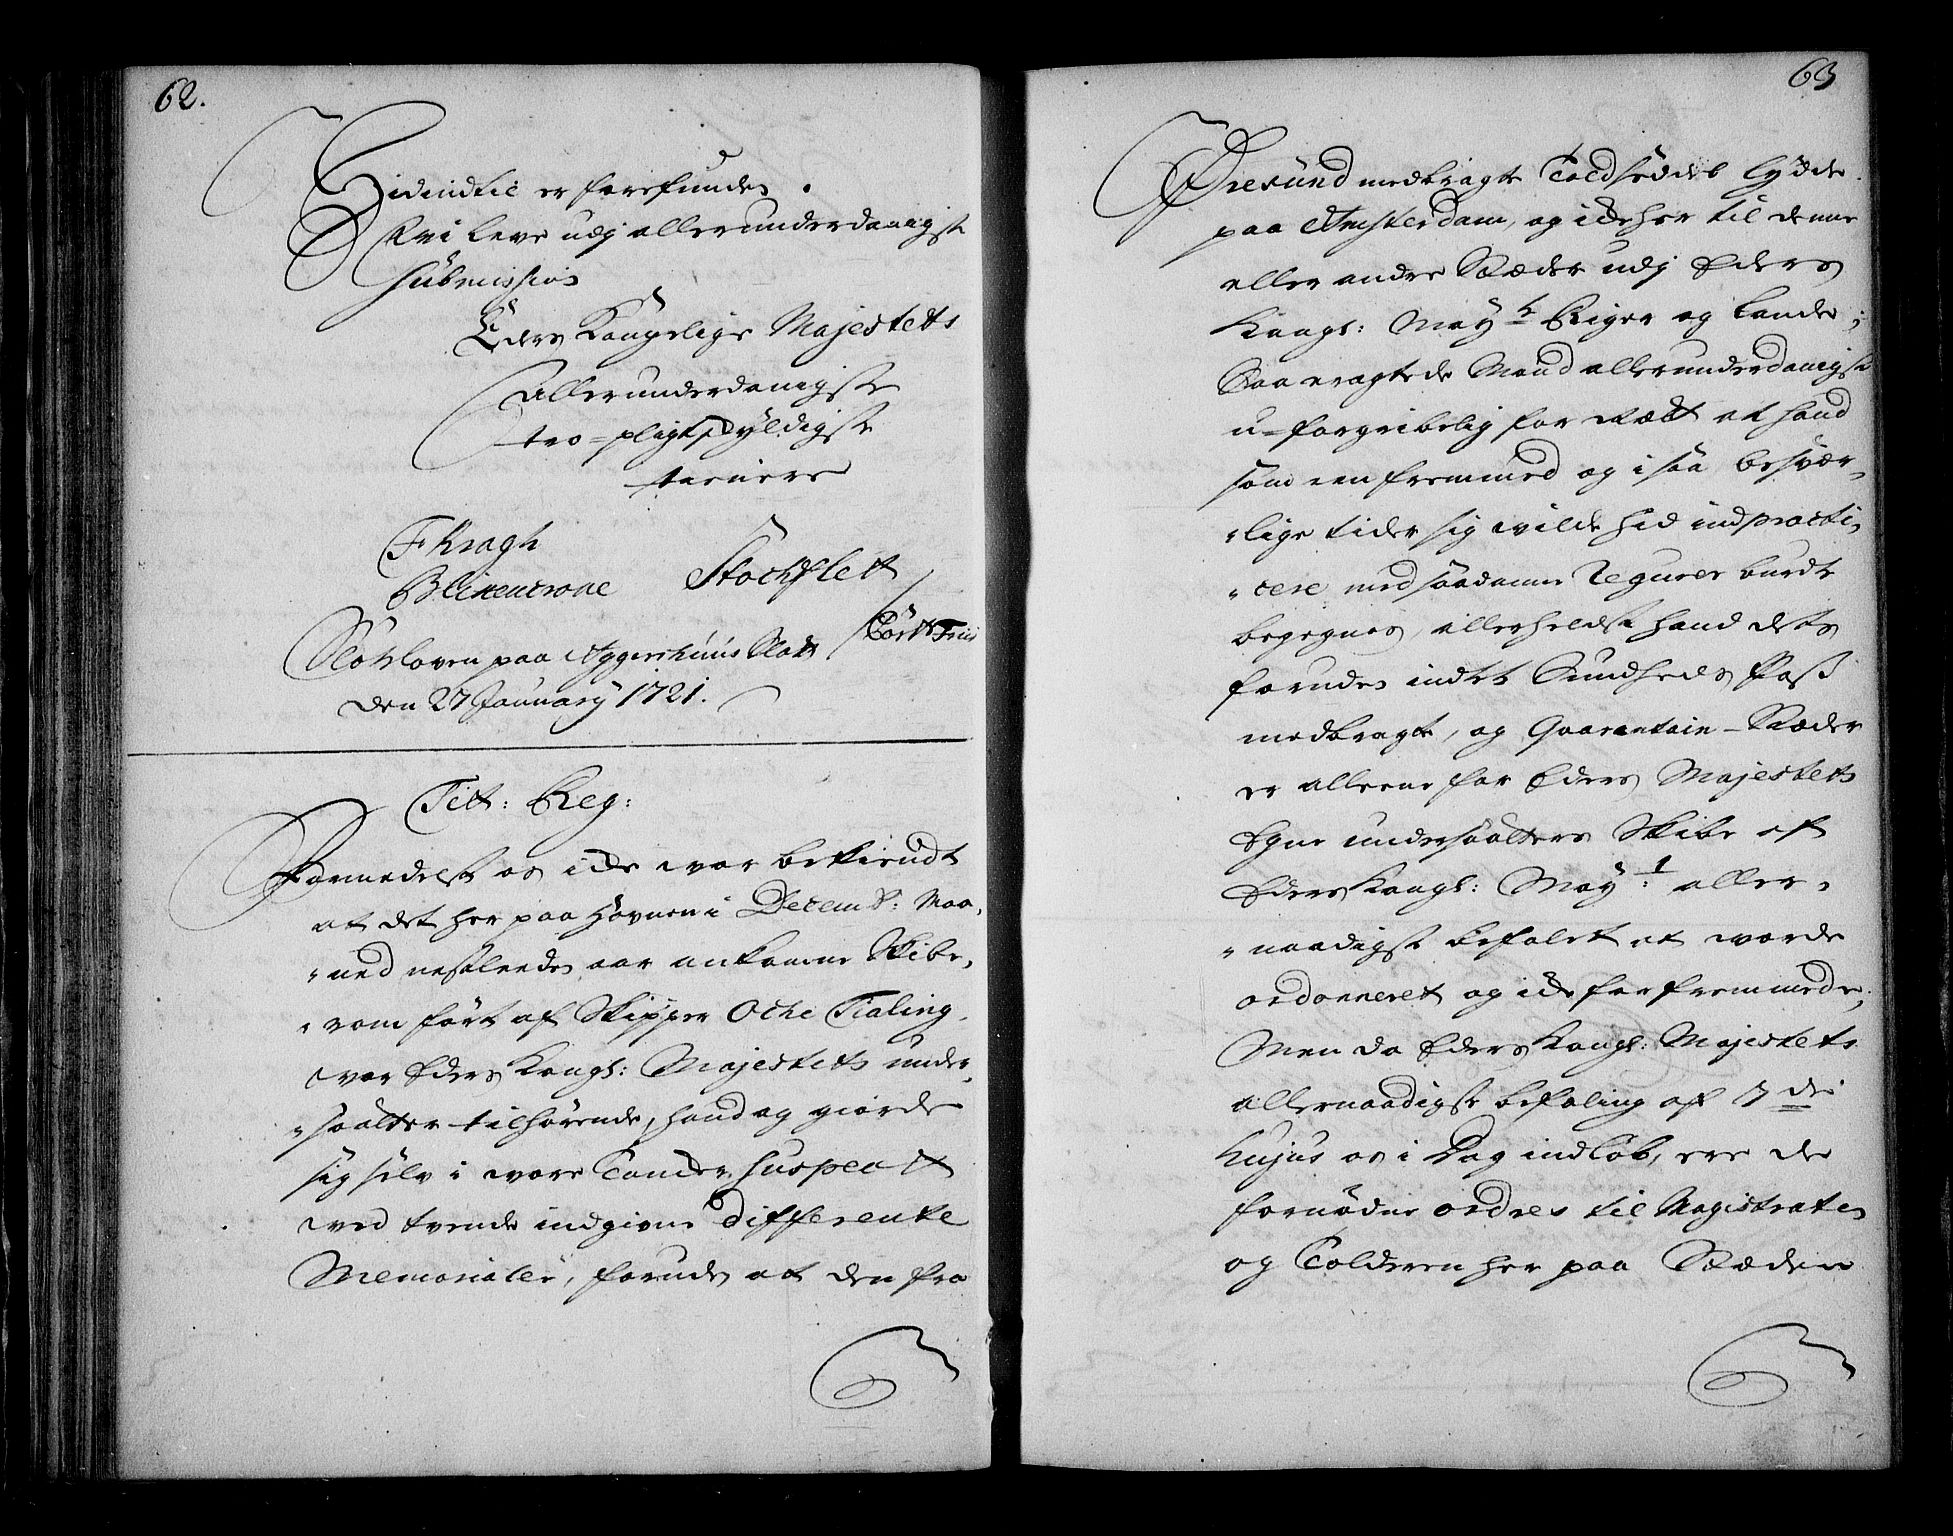 62.
Hidindtil er forefunden.
Wi leve udj allerunderdanigste
Submission
Eders Kongelige Majestetts
allerunderdanigste
tro-pligtskyldigste
tienere
F Kragh
Blixencrone Stochflett
Bört Friis
Slotsloven paa Aggershuus Slott
den 27 January 1721.
Titt: Reg:
Formedelst os icke var bekiendt
at det her paa Hövnen i Decembr: Maa-
ned nestleeden aar ankomne Skibs-
rom fört af Skipper Ocke Tialing
var Eders Kongl: Majestets under-
saatter tilhörende, hand og giorde
sig self i vore Tancker Suspect
ved tvende indgivne differente
Memorialer, foruden at den fra
63
Öresund medbragte Toldseddel lydde
paa Amsterdam, og icke her til denne
eller andre Stæder udj Eders
Kongl: Mayts Riger og Lande;
Saa eragtede Mand allerunderdanigst
u-forgribelig for Rætt at hand
som een fremmed og i saa besvær-
lige tider sig vilde hid indpracti-
cere med saadanne Regurer burdte
begegnes, allerhelst hand dets
foruden intet Sundheds Pass
medbragte, og Quarantain-Stæder
er alleene for Eders Majestets
Egne undersaatters Skibe af
Eders Kongl: May:t aller-
naadigst befalet at vorde
ordonneret og icke for fremmede;
Men da Eders Kongl: Majestets
allernaadigste befaling af 7de
hujus os i Dag indlöb, ere de
fornödne ordres til Magistraten
og Tolderen her paa Stæden